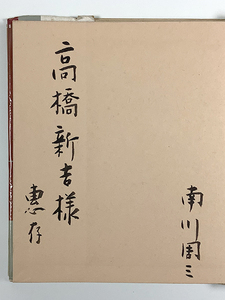 高橋新吉様
惠存
南川周三